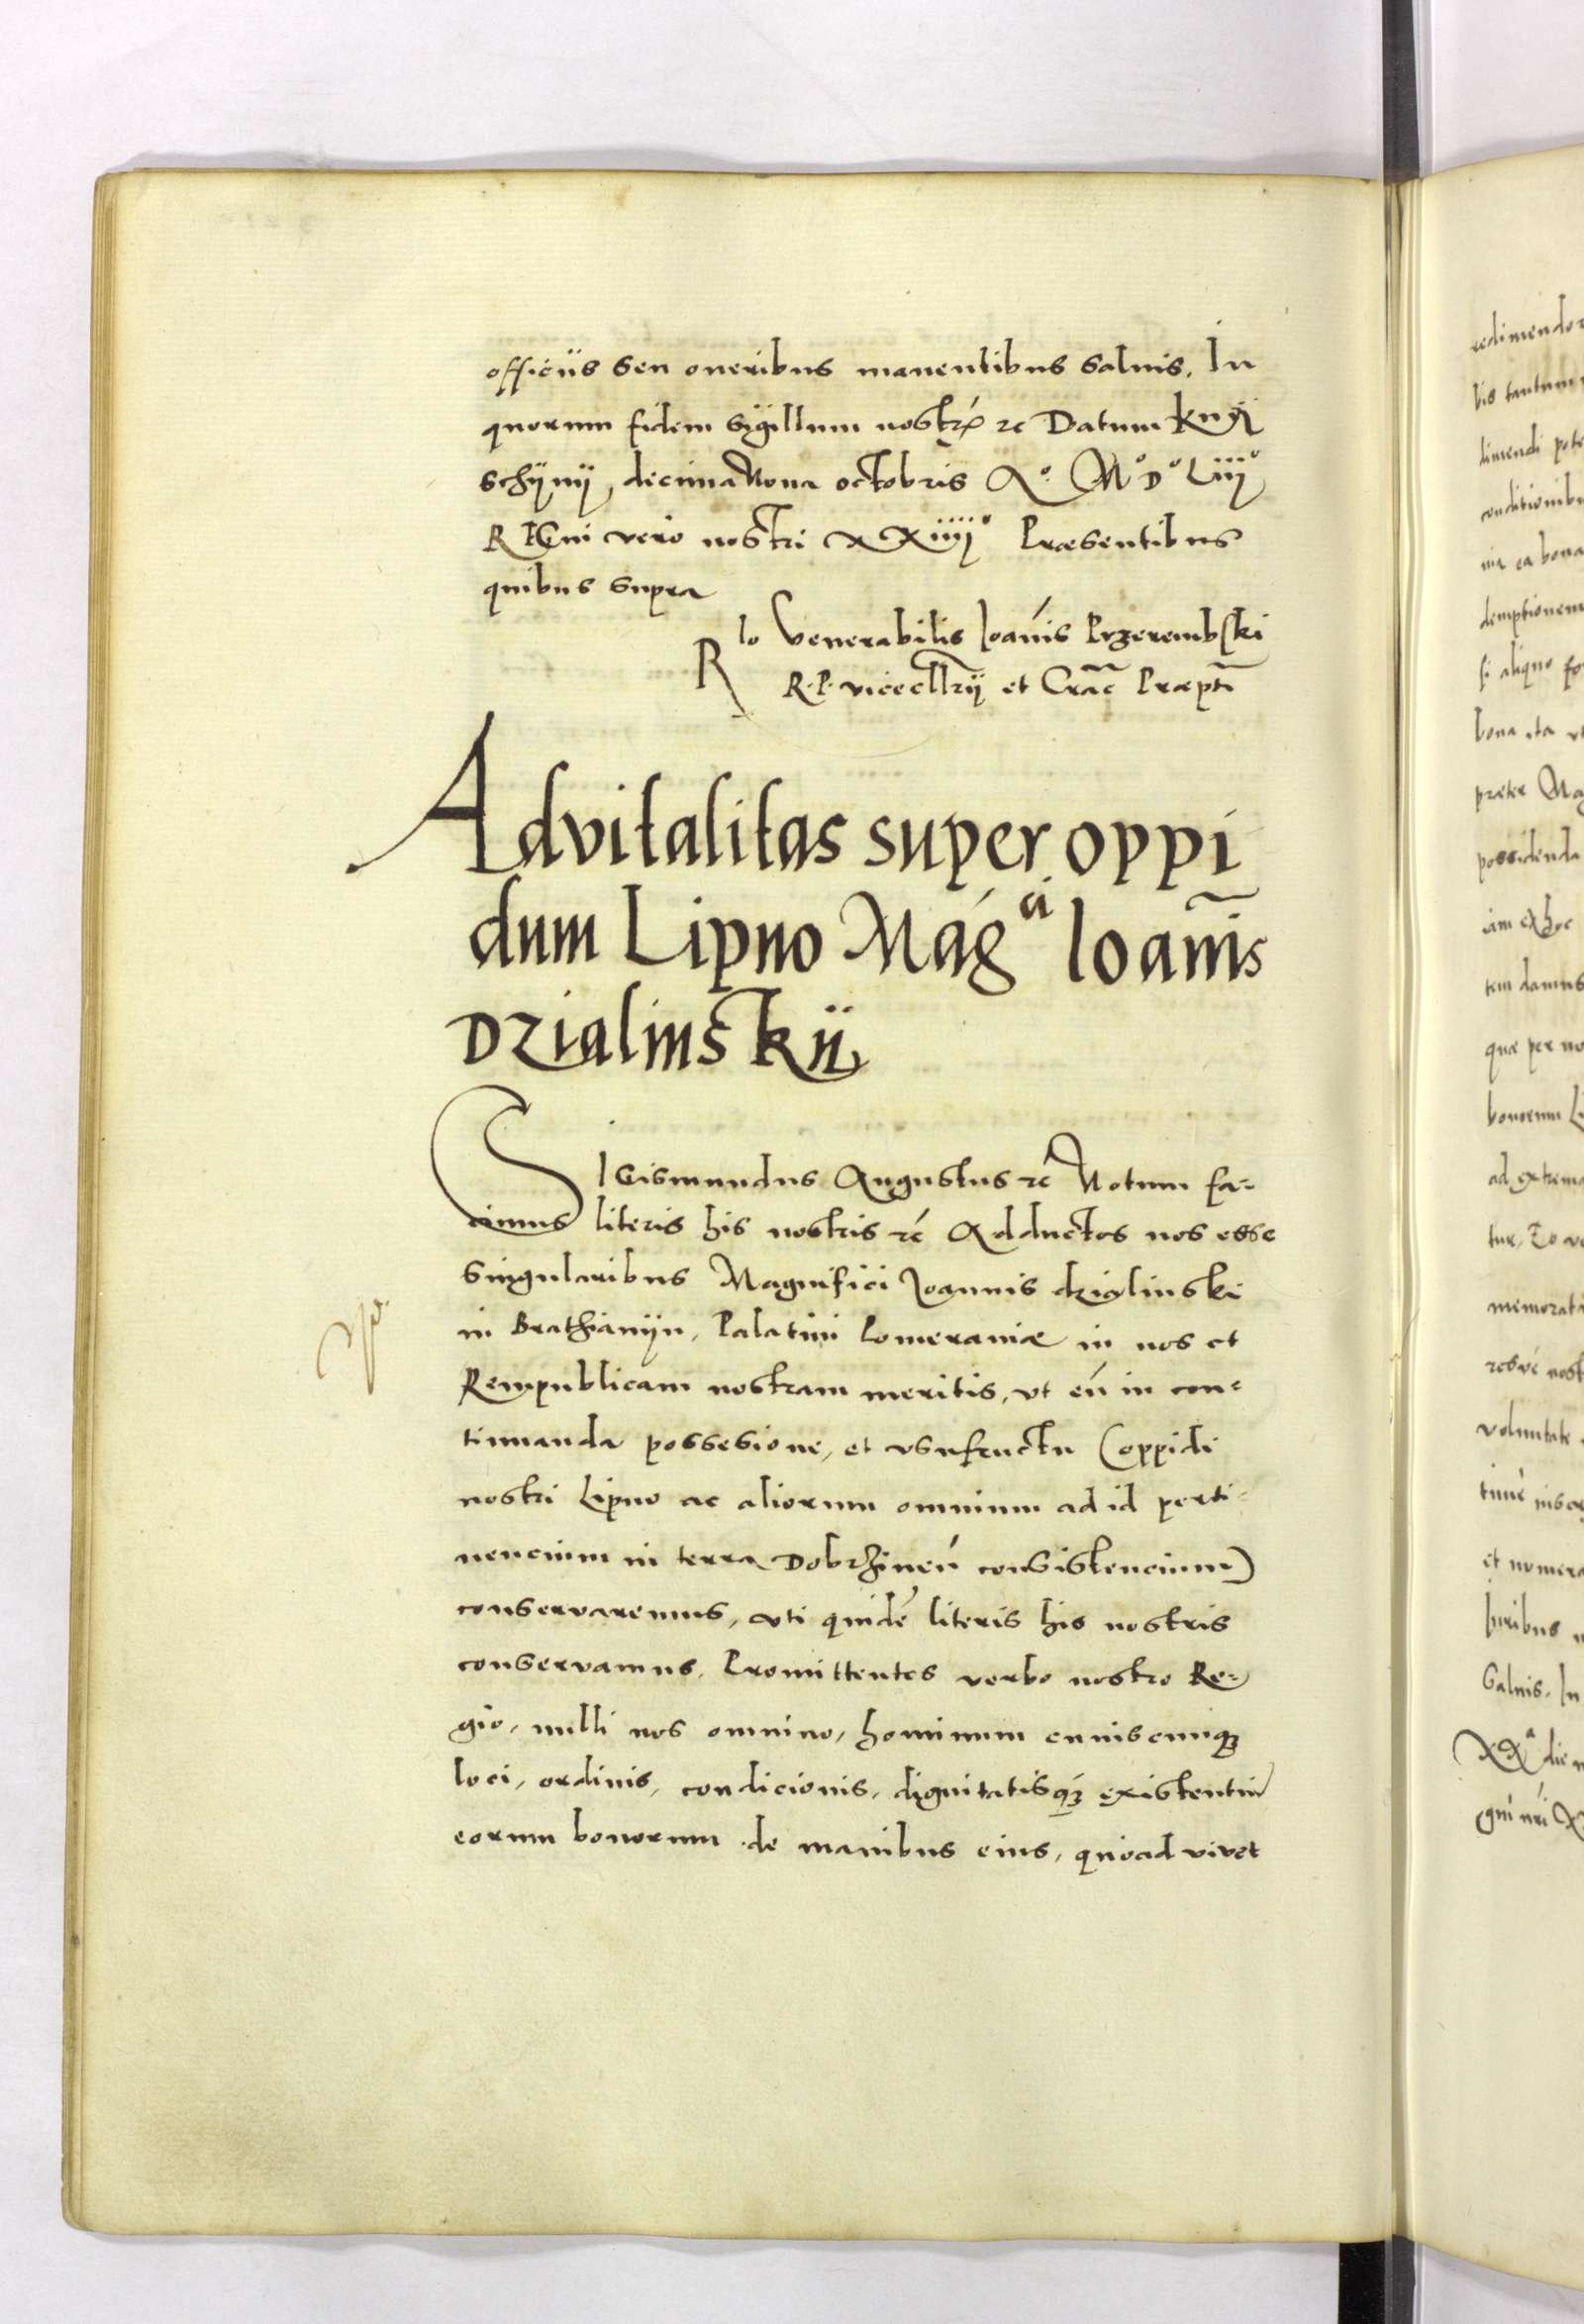 officiis seu oneribus manentibus salvis. In
quorum fidem sigillum nostrū etc Datum Knÿ
schÿnÿ, decima Nona octobris Aº. Mº Dº Liiiº
REGni vero nostri XXiiiiº Præsentibus
quibus supra
Rlo Venerabilis Ioañis Przerembski
R. P. vicecllrij et Crac̄ Præpti
Advitalitas super oppi
dum Lipno Mágci Ioannis
Dzialinskij
SIGismundus Augustus etc Notum fa-
cimus literis his nostris etc Adductos nos esse
singularibus Magnifici Joannis dzialinski
in Brathianÿn, Palatini Pomeraniæ in nos et
Rempublicam nostram meritis, vt eū in con-
tinuanda possesione, et vsufructu (oppidi
nostri Lipno ac aliorum omnium ad id perti-
nencium in terra Dobrzineń consistencium)
conservaremus, vti quidē literis his nostris
conservamus. Promittentes verbo nostro Re-
gio, nulli nos omnino, hominum cuiuscunqꝫ
loci, ordinis, condicionis, dignitatisqꝫ existentiū
eorum bonorum de manibus eius, quoad vivet
redimendor
bis tantum
dimendi pote
conditionibu
nia ea bona
demptionem
si aliquo fo
bona ita vt
præter Mag
possidenda
iam ex hoc
tem damus
quæ per no
bonorum Li
ad extrema
tur. Eo ve
memorati
resve nost
voluntate
et numera
salvis. In
XXa die
gni nri XX